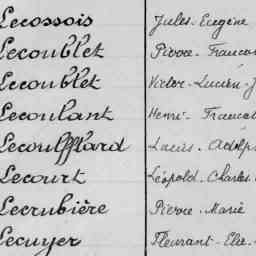 Lecossois Jules-Eugène
Lecoublet Pierre-Francois
Lecoublet Victor-Lucien-J
Lecoulant Henri-Francois
Lecoufflard Louis-Adolph
Lecourt Léopold-Charles-
Lecrubière Pierre-Marie
Lecuyer Fleurant-